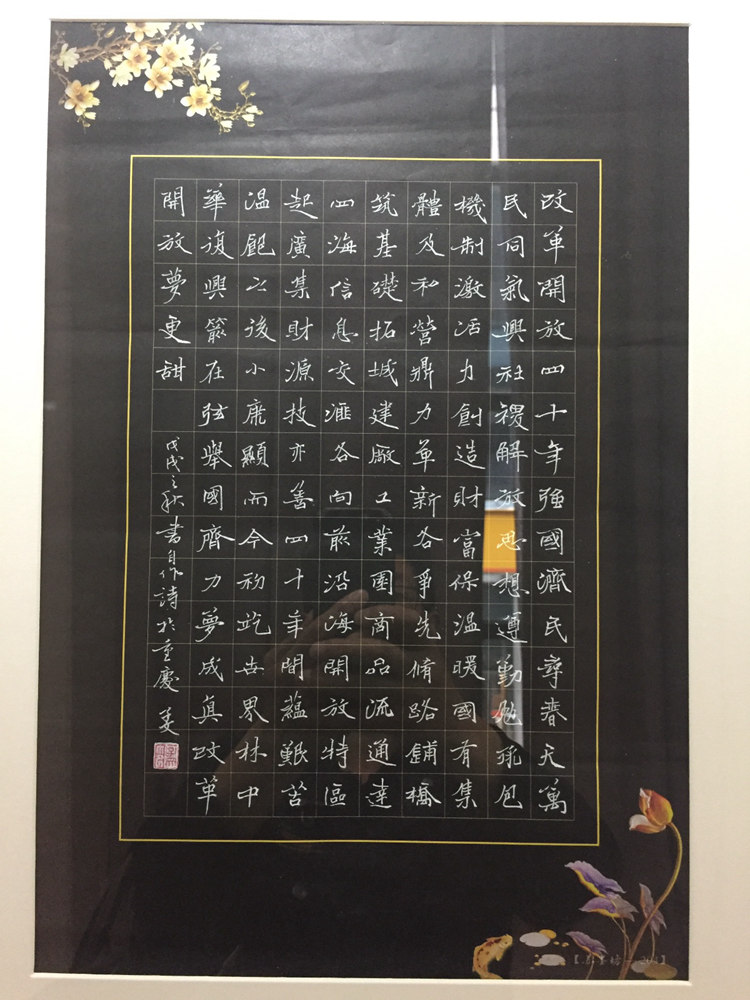 改革開放四十年強國濟民尋春天萬
民同氣興社稷解放思想運勤勉承包
機制激活力創造財富保温暖國有集
體及私營鼎力革新各爭先脩路鋪橋
筑基礎拓城建廠工業園商品流通達
四海信息交匯各向前沿海開放特區
起廣集財源技亦善四十年間蘊艱苦
温飽之後小康顯而今初屹世界林中
華復興箭在弦舉國齊力夢成真改革
開放夢更甜
戊戌之秋書自作詩於重慶